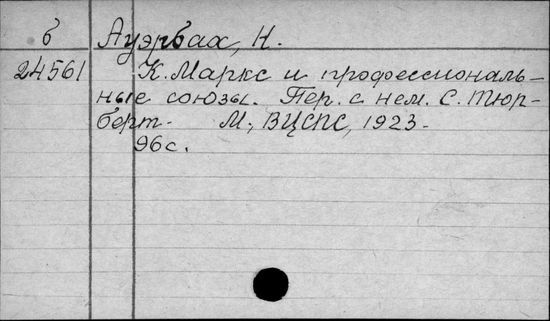 б Ауэрбах, Н.
24561 К. Маркс и профессиональ-
ные союзы. Пер. с нем. С. Тюр-
берт. М., ВЦСПС, 1923.
96 с.